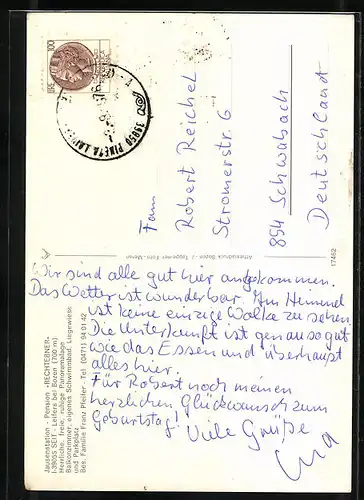 Wir sind alle gut hier angekommen.
Das Wetter ist wunderbar. Am Himmel
ist keine einzige Wolke zu sehen.
Die Unterkunft ist genau so gut
wie das Essen und überhaupt
alles hier.
Für Robert noch meinen
herzlichen Glückwunsch zum
Geburtstag! Viele Grüße
Fam
Robert Reichel
Stromerstr. 6
854 Schwabach
Deutschland
39050 PINETA
100
Jausenstation - Pension »RECHTEBNER«
I-39055 SEIT - Leifers bei Bozen (700 m)
Herrliche, freie, ruhige Panoramalage
Balkonzimmer, eigenes Schwimmbad, Liegewiese
und Parkplatz
Bes. Familie Franz Pfeifer - Tel. (0471) 94 01 42
17462